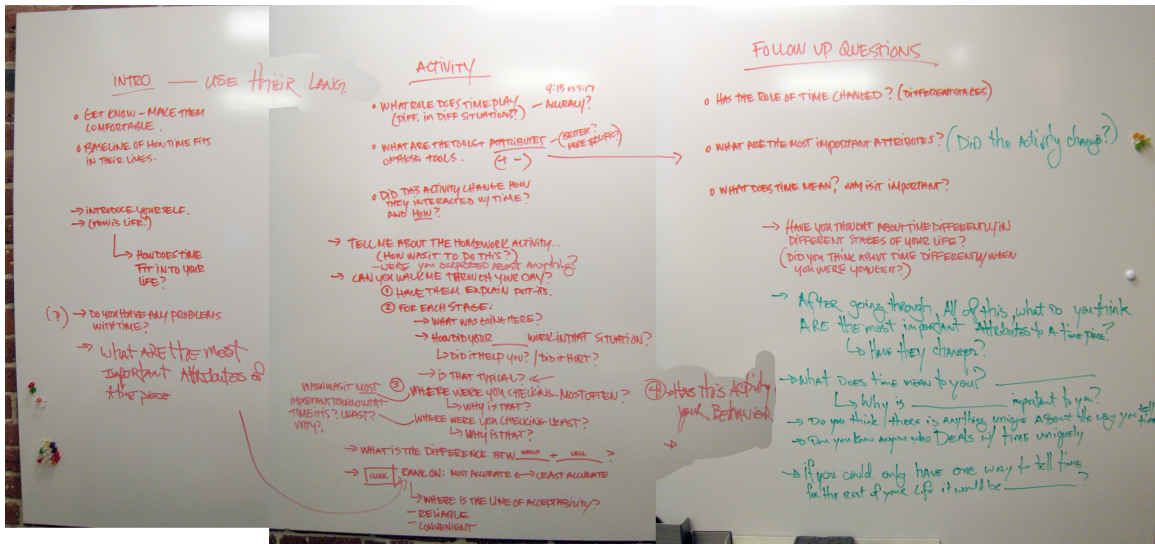 INTRO — USE THEIR LANG.
• GET KNOW - MAKE THEM
COMFORTABLE.
• BASELINE OF HOW TIME FITS
IN THEIR LIVES.
→ INTRODUCE YOURSELF.
→ (HOW IS LIFE?)
→ HOW DOES TIME
FIT IN TO YOUR
LIFE?
(?) → DO YOU HAVE ANY PROBLEMS
WITH TIME?
→ WHAT ARE THE MOST
IMPORTANT ATTRIBUTES OF
A time piece
ACTIVITY
9:15 vs 9:17
• WHAT ROLE DOES TIME PLAY — ACCURACY?
(DIFF. IN DIFF SITUATIONS?)
• WHAT ARE THE TOOLS + ATTRIBUTES — (BETTER?
MORE SPECIFIC?)
OF THOSE TOOLS. (+ -)
• DID THIS ACTIVITY CHANGE HOW
THEY INTERACTED W/ TIME?
AND HOW?
→ TELL ME ABOUT THE HOMEWORK ACTIVITY...
(HOW WAS IT TO DO THIS?)
- WERE YOU SURPRISED ABOUT ANYTHING?
→ CAN YOU WALK ME THROUGH YOUR DAY?
① HAVE THEM EXPLAIN POST-ITS.
② FOR EACH STAGE:
→ WHAT WAS GOING HERE?
→ HOW DID YOUR ____ WORK IN THAT SITUATION?
↳ DID IT HELP YOU? / DID IT HURT?
→ IS THAT TYPICAL? ←
③ WHERE WERE YOU CHECKING MOST OFTEN?
↳ WHY IS THAT?
WHERE WERE YOU CHECKING LEAST?
↳ WHY IS THAT?
WHEN WAS IT MOST
IMPORTANT TO KNOW WHAT
TIME IT IS? LEAST?
WHY?
→ WHAT IS THE DIFFERENCE BTW WATCH + CELL ?
→ CLOCK RANK ON: MOST ACCURATE ↔ LEAST ACCURATE
↳ WHERE IS THE LINE OF ACCEPTABILITY?
- RELIABLE
- CONVENIENT
④ → Has this Activity
your Behavior
→
FOLLOW UP QUESTIONS
• HAS THE ROLE OF TIME CHANGED? (DIFFERENT STAGES)
• WHAT ARE THE MOST IMPORTANT ATTRIBUTES? (Did the Activity change?)
• WHAT DOES TIME MEAN? WHY IS IT IMPORTANT?
→ HAVE YOU THOUGHT ABOUT TIME DIFFERENTLY IN
DIFFERENT STAGES OF YOUR LIFE?
(DID YOU THINK ABOUT TIME DIFFERENTLY WHEN
YOU WERE YOUNGER?)
→ After going through, All of this, what do you think
ARE the most important Attributes to A time piece?
↳ Have they changed?
→ What Does time mean to you? ____
↳ Why is ____ important to you?
→ Do you think there is anything unique About the way you tell time
→ Do you know anyone who DEALS w/ time uniquely
→ if you could only have one way to tell time
for the rest of your life it would be ____?